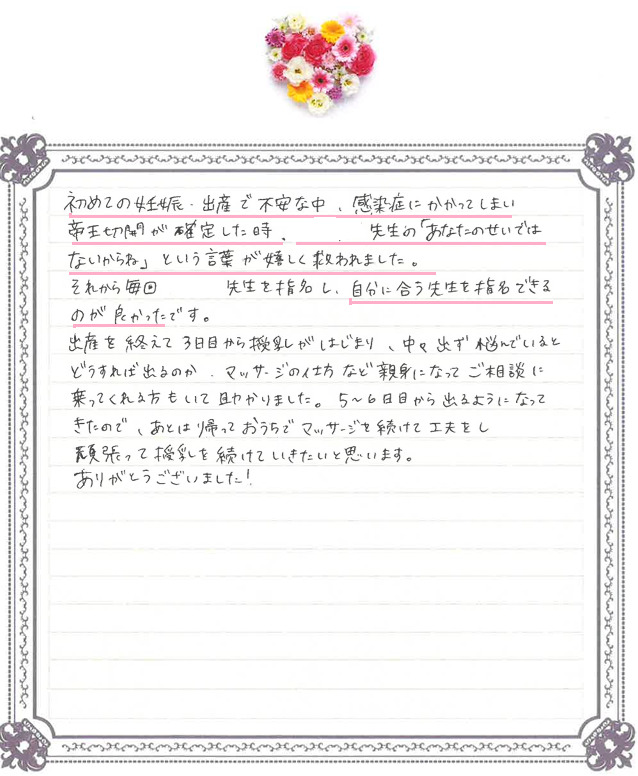 初めての妊娠・出産で不安な中、感染症にかかってしまい
帝王切開が確定した時、　　　先生の「あなたのせいでは
ないからね」という言葉が嬉しく救われました。
それから毎回　　　先生を指名し、自分に合う先生を指名できる
のが良かったです。
出産を終えて3日目から授乳がはじまり、中々出ず悩んでいると
どうすれば出るのか、マッサージの仕方など親身になってご相談に
乗ってくれる方もいて助かりました。5〜6日目から出るようになって
きたので、あとは帰っておうちでマッサージを続けて工夫をし
頑張って授乳を続けていきたいと思います。
ありがとうございました!